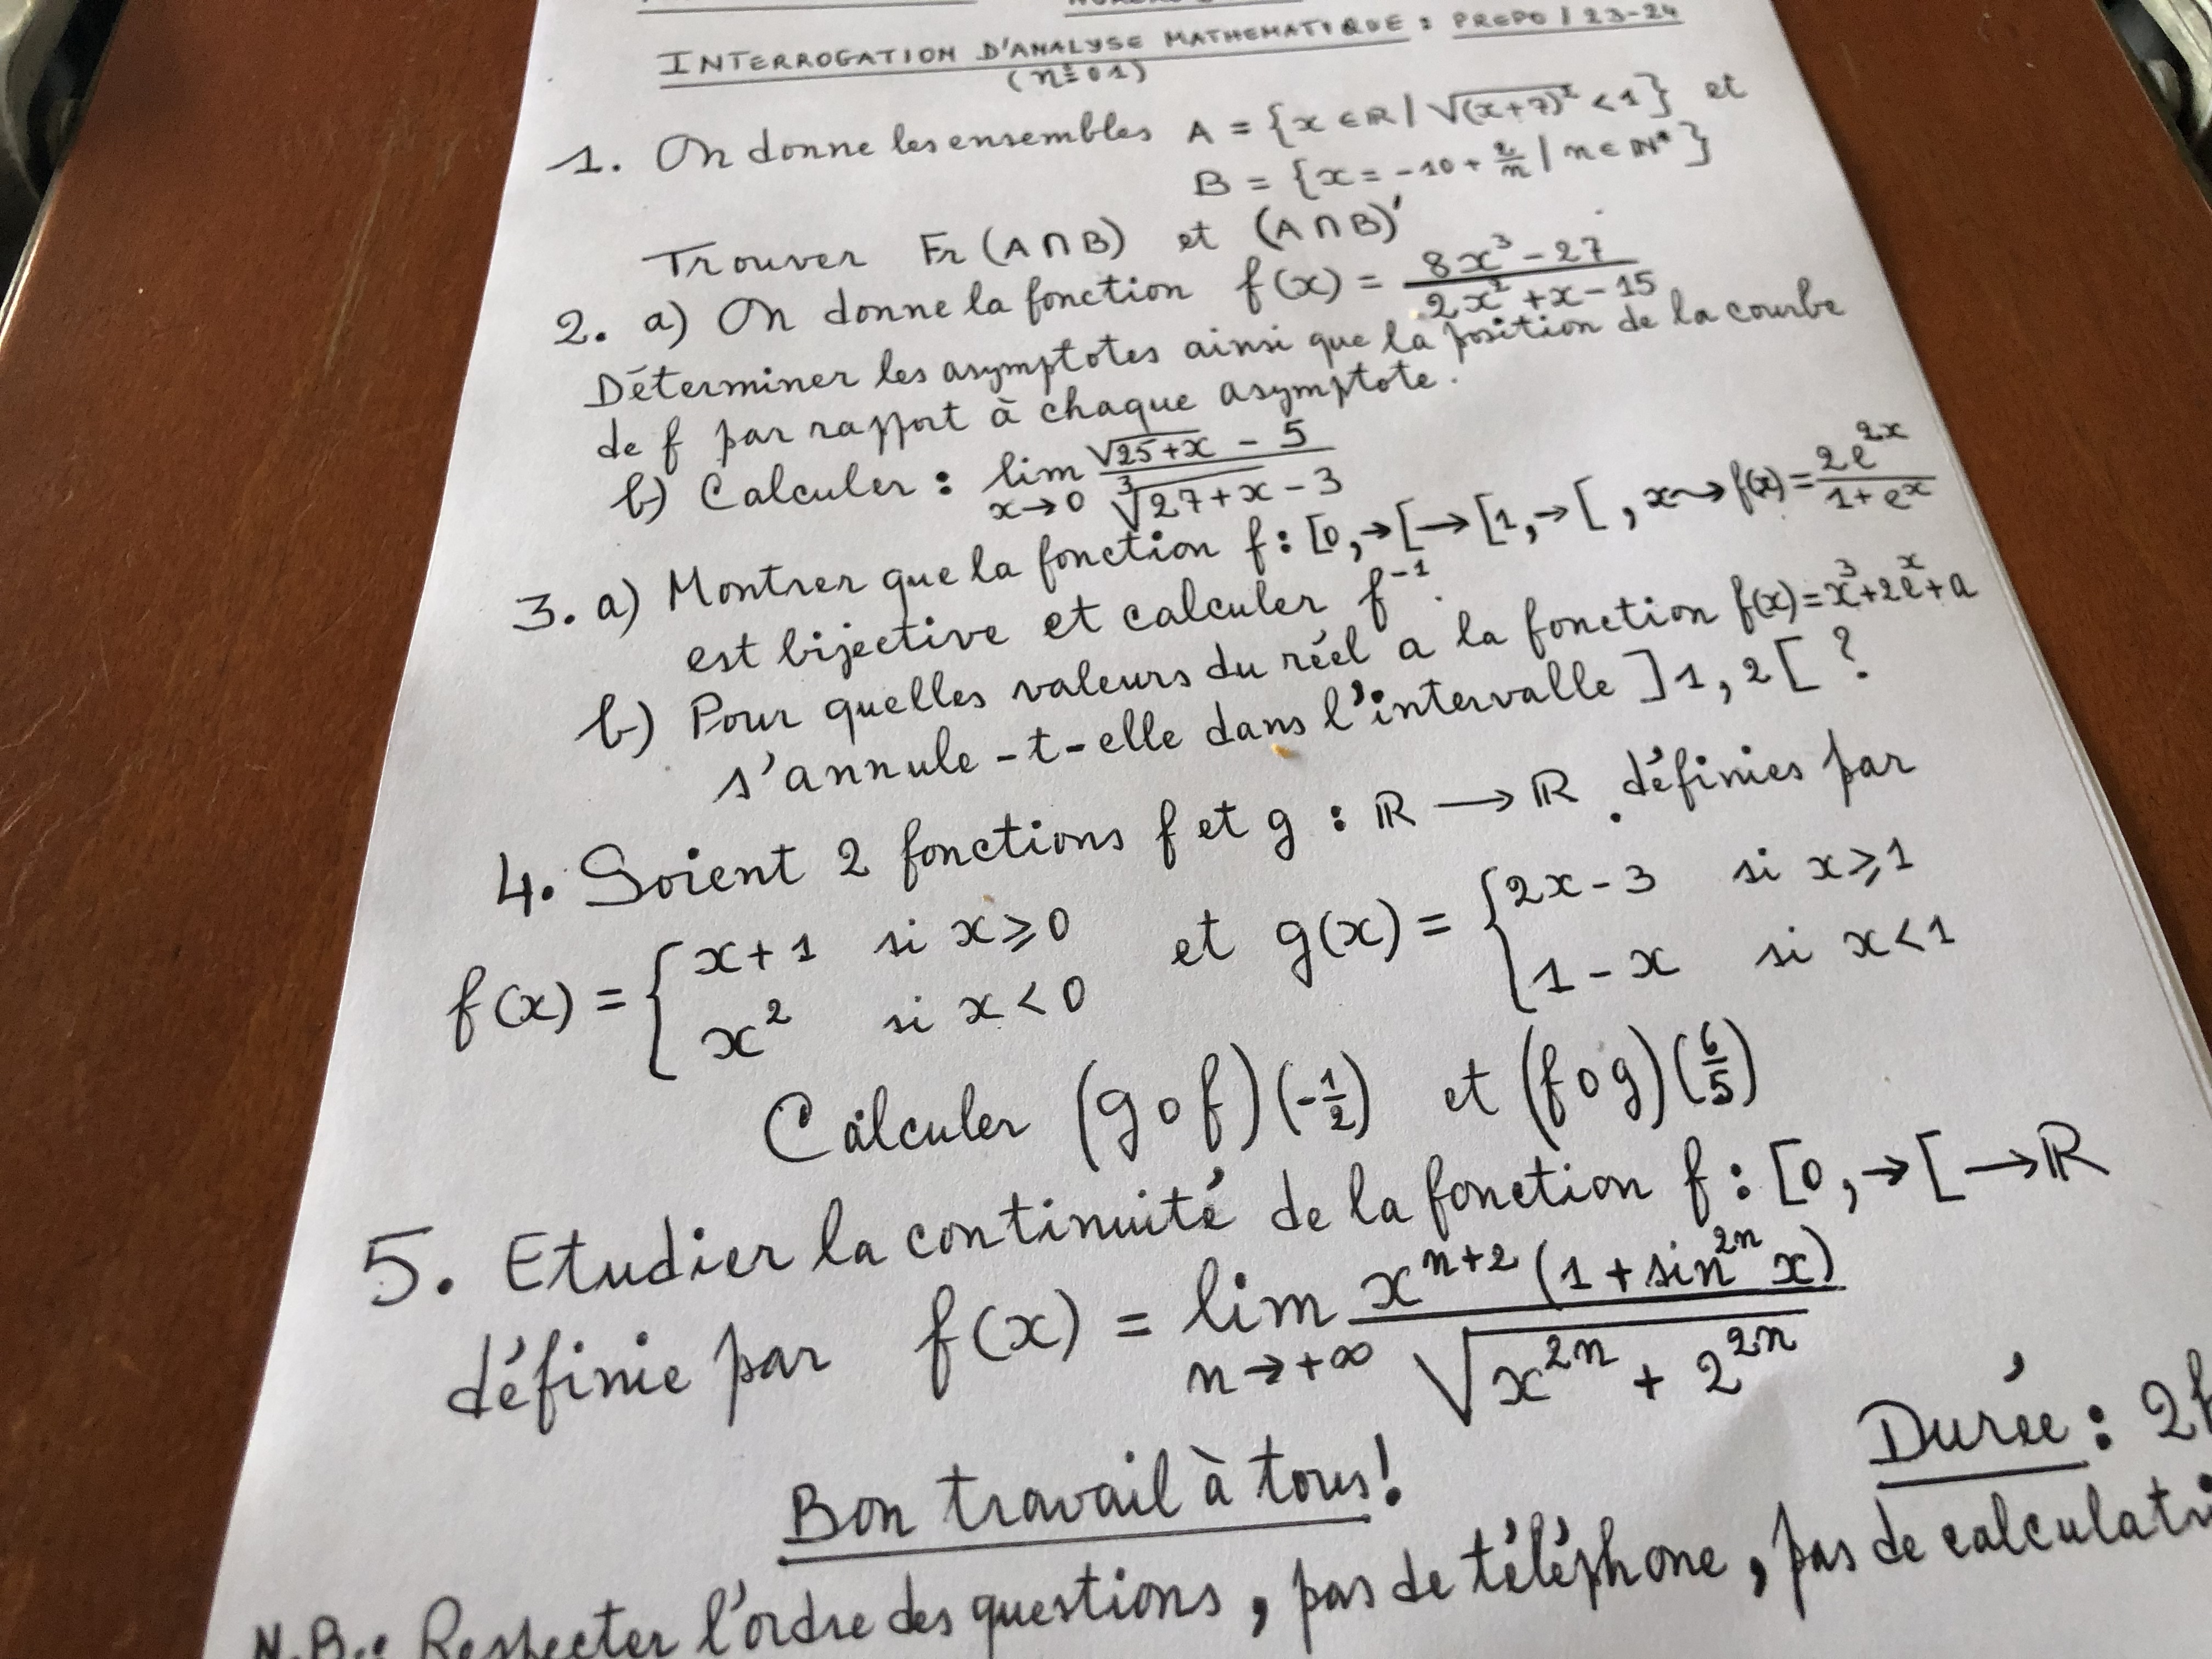 INTERROGATION D'ANALYSE MATHEMATIQUE : PREPO / 23-24
(n°= 01)
1. On donne les ensembles A = {x ∈ ℝ / √(x+7)² < 1} et
B = {x = -10 + 2/n / n ∈ ℕ*}
Trouver Fr (A ∩ B) et (A ∩ B)'
2. a) On donne la fonction f(x) = (8x³ - 27)/(2x² + x - 15)
Déterminer les asymptotes ainsi que la position de la courbe
de f par rapport à chaque asymptote.
b) Calculer : lim x→0 (√(25+x) - 5)/(∛(27+x) - 3)
3. a) Montrer que la fonction f : [0,→[ → [1,→[ , x ⇝ f(x) = 2e^{2x}/(1 + e^x)
est bijective et calculer f⁻¹.
b) Pour quelles valeurs du réel a la fonction f(x) = x³ + 2e^x + a
s'annule-t-elle dans l'intervalle ]1, 2[ ?
4. Soient 2 fonctions f et g : ℝ → ℝ définies par
f(x) = { x + 1 si x ⩾ 0 et g(x) = { 2x - 3 si x ⩾ 1
x² si x < 0 1 - x si x < 1
Calculer (g o f)(-1/2) et (f o g)(6/5)
5. Etudier la continuité de la fonction f : [0,→[ → ℝ
définie par f(x) = lim n→+∞ x^{n+2} (1 + sin^{2n} x)/√(x^{2n} + 2^{2n})
Durée : 2h
Bon travail à tous !
N.B.: Respecter l'ordre des questions, pas de téléphone, pas de calculatri